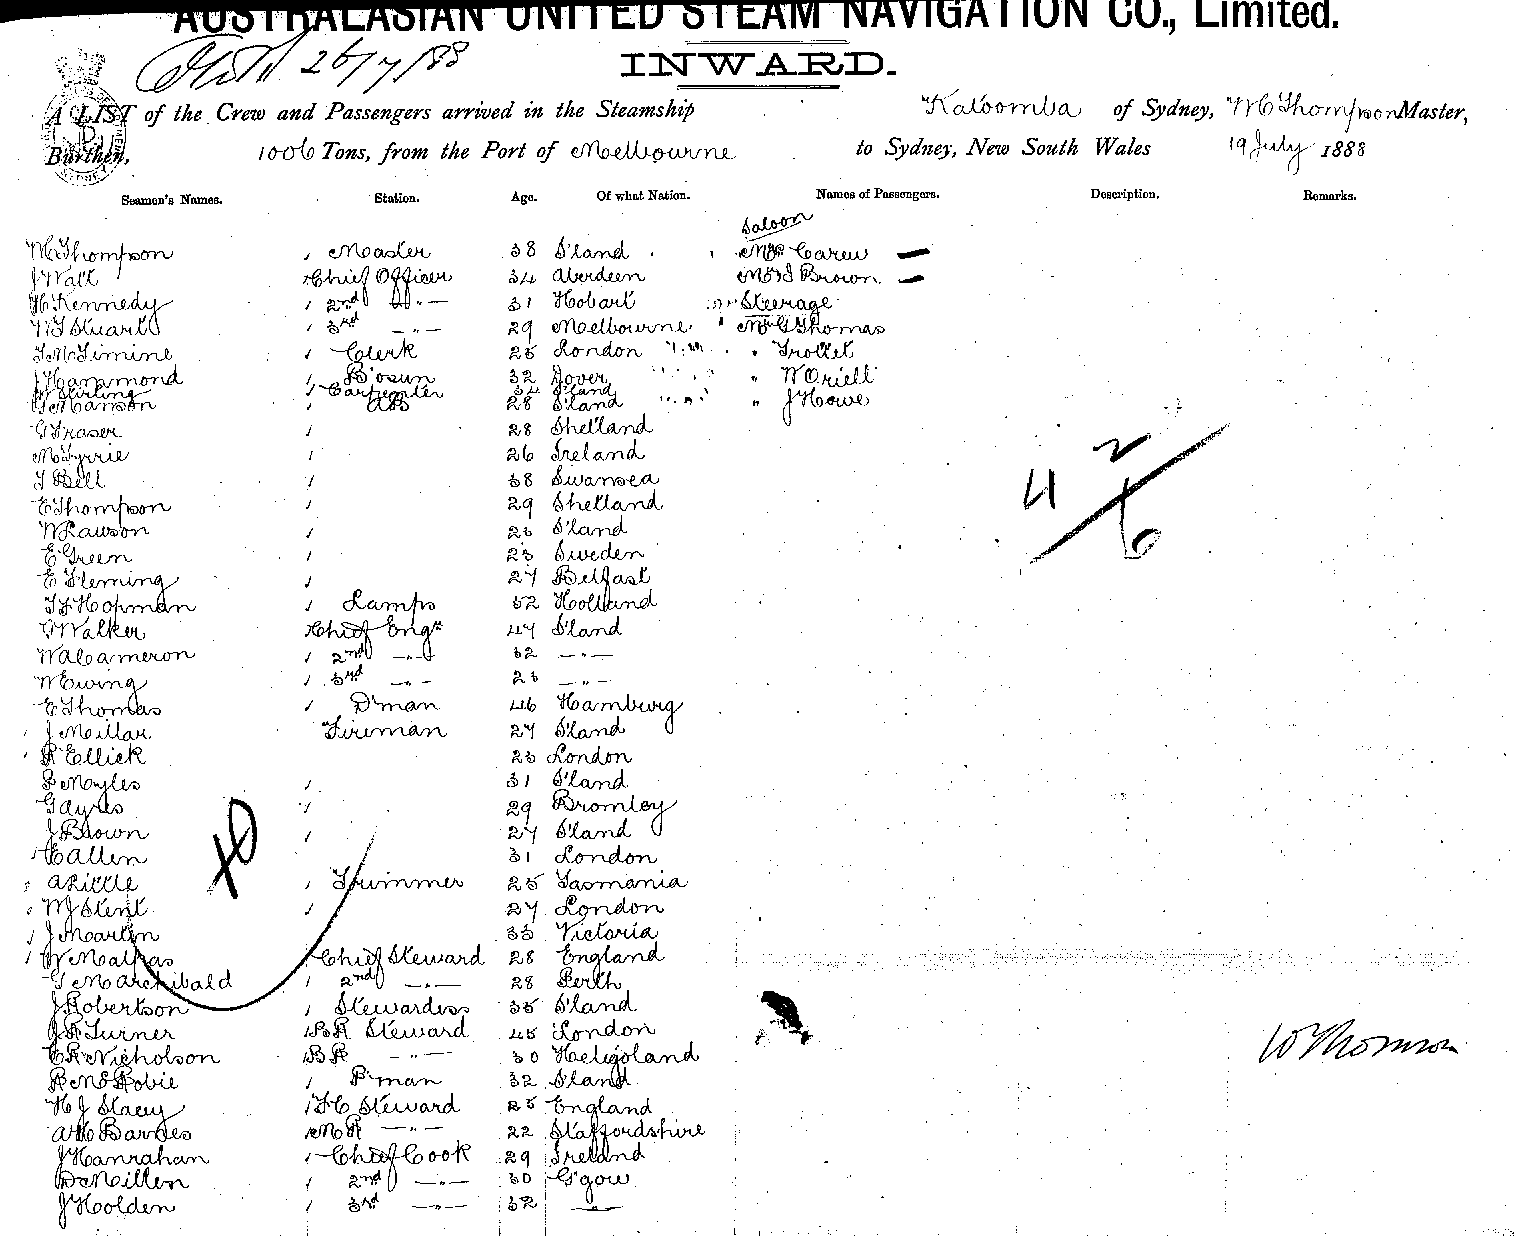 AUSTRALASIAN UNITED STEAM NAVIGATION CO., Limited.
26/7/88
INWARD.
A LIST of the Crew and Passengers arrived in the Steamship Katoomba of Sydney, W C Thompson Master,
Burthen, 1006 Tons, from the Port of Melbourne to Sydney, New South Wales 19 July 1888
Seamen's Names. Station. Age. Of what Nation. Names of Passengers. Description. Remarks.
Saloon
W C Thompson 1 Master 38 S'land Mrs Carew
J Watt 1 Chief Officer 34 Aberdeen Mrs J Brown
H Kennedy 1 2nd -"- 31 Hobart Steerage
W J Stuart 1 3rd -"- 29 Melbourne Mr G Thomas
1 Clerk 25 London " Trottet
J Hammond 1 B'osun 32 Dover " W Oriell
W Stirling 1 Carpenter 34 S'land
G Manson 1 AB 28 S'land " J Howe
G Fraser 1 28 Shetland
M Tyrrie 1 26 Ireland
T Bell 1 38 Swansea
E Thompson 1 29 Shetland
W Lawson 1 23 S'land
E Green 1 23 Sweden
E Fleming 1 27 Belfast
J F Hopman 1 Lamps 52 Holland
G Walker 1 Chief Engr 47 S'land
W A Cameron 1 2nd -"- 32 -"-
W Ewing 1 3rd -"- 23 -"-
E Thomas 1 D'man 46 Hamburg
J Millar Fireman 27 S'land
R Ellick 23 London
L Moyles 1 31 S'land
G Ayres 1 29 Bromley
J Brown 1 27 S'land
C Allen 31 London
A Little 1 Trimmer 25 Tasmania
W J Stent 1 27 London
J Martin 33 Victoria
W Malpas 1 Chief Steward 28 England
G M Archibald 1 2nd -"- 28 Perth
J Robertson 1 Stewardess 35 S'land
J R Turner 1 BR Steward 45 London
C R Nicholson 1 BR -"- 30 Heligoland
R McRobie 1 P'man 32 S'land
H J Stacey 1 F C Steward 25 England
A H Barnes 1 MR -"- 22 Staffordshire
J Hanrahan 1 Chief Cook 29 Ireland
D Millen 1 2nd -"- 30 G'gow
J Holden 1 3rd -"- 32 -"-
41
2
6
W Thomson